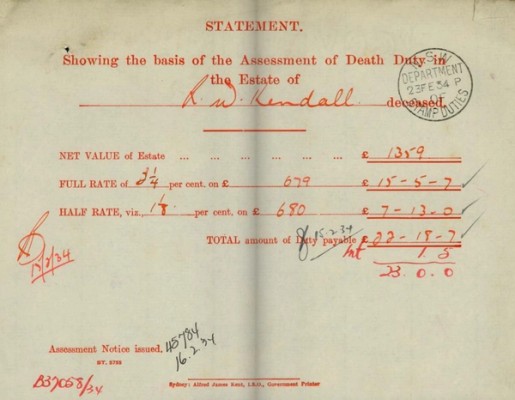 STATEMENT.
Showing the basis of the Assessment of Death Duty in
the Estate of
R. W. Kendall deceased.
N.S.W.
DEPARTMENT
23 FE 34 P
OF
STAMP DUTIES
NET VALUE of Estate ... ... ... ... ... ... £ 1359
FULL RATE of 2¼ per cent. on £ 679 £ 15-5-7
HALF RATE, viz., 1⅛ per cent. on £ 680 £ 7-13-0
TOTAL amount of Duty payable £ 22-18-7
15.2.34
Int 1.5
23.0.0
15/2/34
Assessment Notice issued, 45784
16.2.34
ST. 3795
B37058/34
Sydney: Alfred James Kent, I.S.O., Government Printer